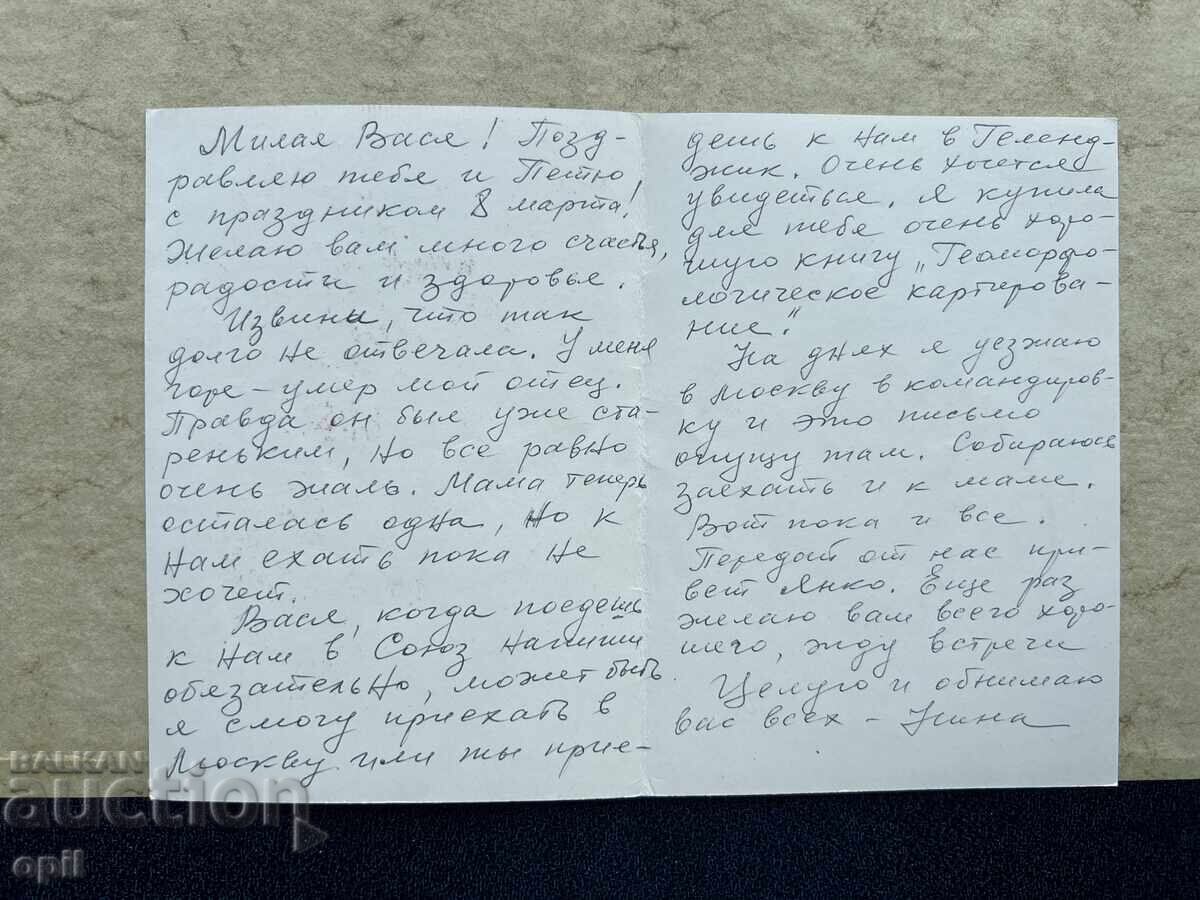 Милая Вася! Позд-
равляю тебя и Петю
с праздником 8 марта!
Желаю вам много счастья,
радости и здоровье.
Извини, что так
долго не отвечала. У меня
горе - умер мой отец.
Правда он был уже ста-
реньким, но все равно
очень жаль. Мама теперь
осталась одна, но к
нам ехать пока не
хочет.
Вася, когда поедешь
к нам в Союз напиши
обязательно, может быть
я смогу приехать в
Москву или ты прие-
дешь к нам в Геленд-
жик. Очень хочется
увидеться. Я купила
для тебе очень хоро-
шую книгу „Геоморфо-
логическое картирова-
ние".
На днях я уезжаю
в Москву в командиров-
ку и это письмо
опущу там. Собираюсь
заехать и к маме.
Вот пока и все.
Передай от нас при-
вет Янко. Еще раз
желаю вам всего хоро-
шего, жду встречи
Целую и обнимаю
вас всех - Нина
BALKAN
auction
opil